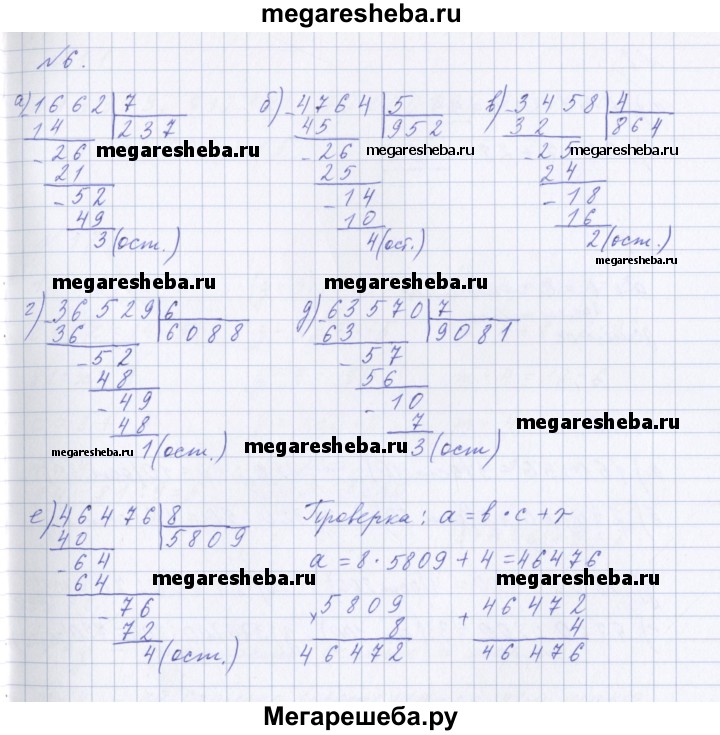 megaresheba.ru
№6.
а) 1662 7 б) 4764 5 в) 3458 4
14 237 45 952 32 864
- 26 megaresheba.ru - 26 megaresheba.ru - 25 megaresheba.ru
21 25 24
- 52 - 14 - 18
49 10 16
3 (ост.) 4 (ост.) 2 (ост.)
megaresheba.ru megaresheba.ru
г) 36529 6 д) 63570 7
36 6088 63 9081
- 52 - 57
48 56
- 49 - 10
48 7 megaresheba.ru
megaresheba.ru 1 (ост.) megaresheba.ru 3 (ост)
е) 46476 8 Проверка: a = b · c + r
40 5809 a = 8 · 5809 + 4 = 46476
- 64 megaresheba.ru megaresheba.ru
64
- 76 × 5809 + 46472
72 8 4
4 (ост.) 46472 46476
Мегарешеба.ру